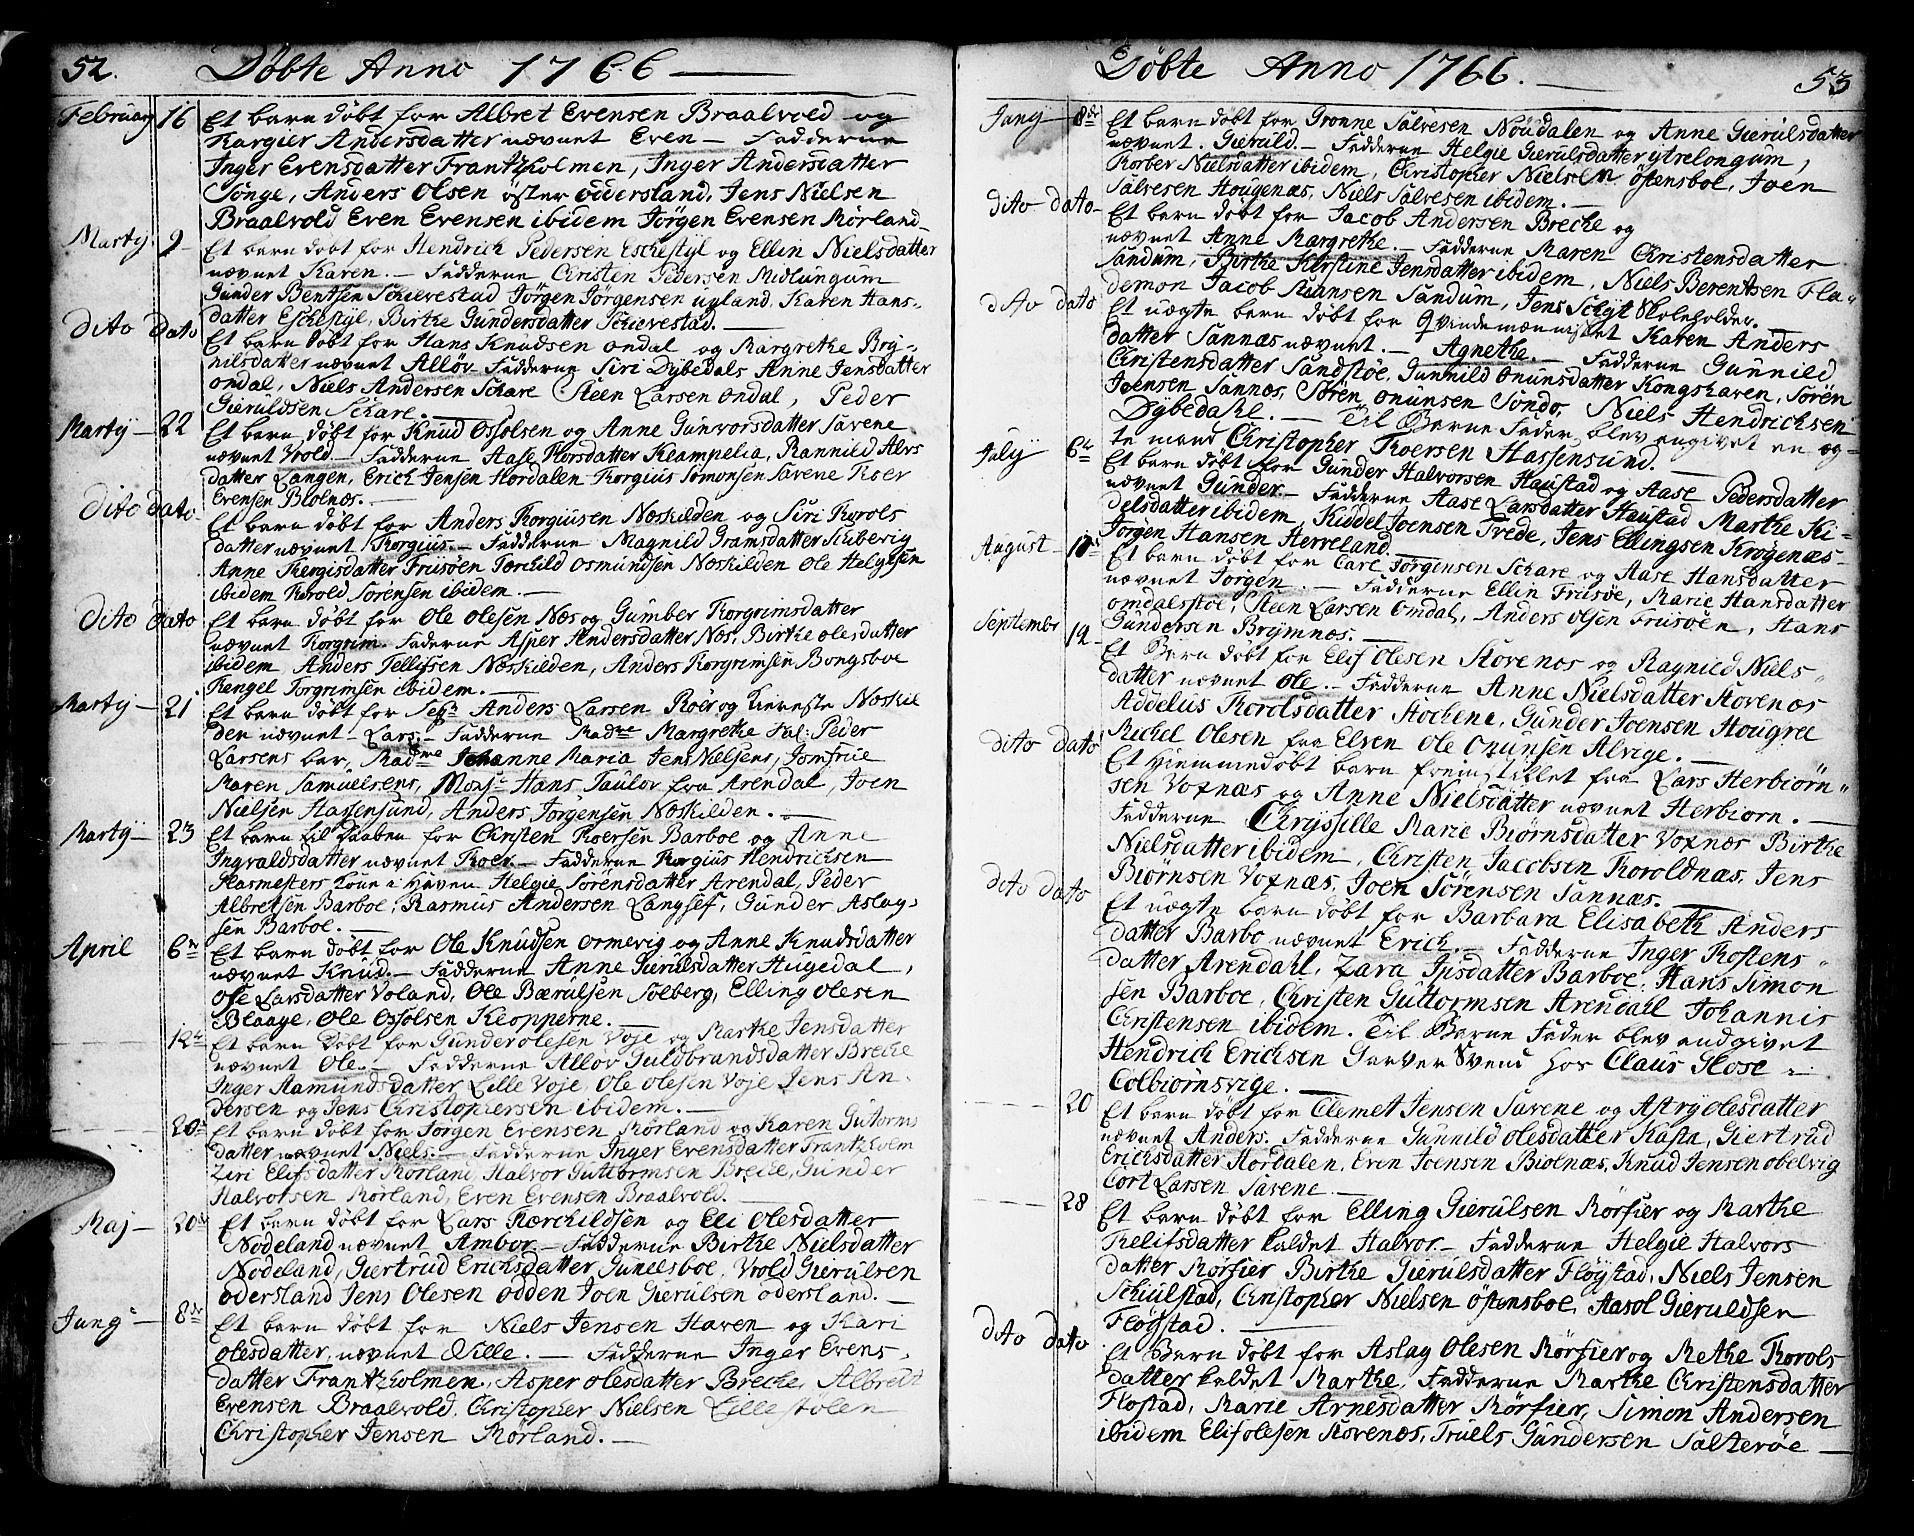 52. Döbte Anno 1766
Februarÿ 16 Et barn döbt for Albret Evensen Braalvold og
Kargier Andersdatter nævnet Even — Fadderne
Inger Evensdatter Frantzholmen, Inger Andersdatter
Songe, Anders Olsen öster oddersland, Jens Nielsen
Braalvold Even Evensen ibidem Jörgen Evensen Rörland
Martÿ 9 Et barn döbt for Hendrich Pedersen Eschestÿl og Ellin Nielsdatter
nævnet Karen. — Fadderne Christen Pedersen Midlungum
Gunder Bentsen Schierestad Jörgen Jörgensen ugland, Karen Hans-
datter Eschestÿl, Birthe Gundersdatter Schierestad.
dito dato Et barn döbt for Hans Knudsen ondal og Margrethe Brÿ-
nilsdatter nævnet Allöv Fadderne Siri Dÿbedals Anne Jensdatter
ondal, Niels Andersen Schare Steen Larsen ondal, Peder
Gieruldsen Schare.
Martÿ — 22 Et barn döbt for Knud Ossolsen og Anne Gunvorsdatter Savene
nævnet Wrold. — Fadderne Aase Thorsdatter Kleampelia, Rannild Alvs
datter Langen, Erich Jensen Hordalen Torgius Somonsen Savene Roer
Evensen Bloenæs. —
dito dato Et barn döbt for Anders Torgiusen Næskilden og Siri Torols
datter nævnet Torgius. — Fadderne Magnild Gramsdatter Suberig
Anne Tergisdatter Frusöen Torchild Osmundsen Næskilden Ole Helgesen
ibidem Torold Sorensen ibidem. —
dito dato Et barn döbt for Ole Olesen Næs og Gumber Torgrimsdatter
nævnet Torgrim. Fadderne Asper Andersdatter Næs, Birthe olesdatter
ibidem Anders Tellefsen Næskilden, Anders Torgrimsen Bongsboe
Tengel Torgrimsen ibidem. —
Martÿ — 21 Et barn döbt for Anders Larsen Roer og Kiereste Næskil
den nævnet Lars. — Fadderne Madme Margrethe Peder
Larsens bar, Madme Johanne Maria Jens Nielsens, Jomfrue
Maren Samuelsens, Mons: Hans Taulov fra Arendal, Joen
Nielsen Hassensund, Anders Jörgensen Næskilden. —
Martÿ — 23 Et barn til Daaben for Christen Roersen Barboe og Anne
Ingvaldsdatter nævnet Roer — Fadderne Torgius Hendrichsen
Glasmesters Kone i Haven Helgie Sörensdatter Arendal, Peder
Albretsen Barboe, Rasmus Andersen Langsef, Gunder Aslag-
sen Barboe. —
April 6te Et barn döbt for Ole Knudsen ormevig og Anne Knudsdatter
nævnet Knud. — Fadderne Anne Gierulsdatter Hugedal,
Ose Larsdatter Voland, Ole Bærulsen Solberg, Elling Olesen
Blaaye, Ole Ossolsen Klopperne. —
12te Et barn Döbt for Gunder olesen Voje og Marthe Jensdatter
nævnet Ole. — Fadderne Allov Guldbrandsdatter Breche
Inger Aamundsdatter Lille Voje, Ole olesen Voje Jens An-
dersen og Jens Christophersen ibidem. —
20de Et barn döbt for Jörgen Evensen Rörland og Karen Guttorms
datter nævnet Niels. — Fadderne Inger Evensdatter Frantzholm
Ziri Elifsdatter Rörland, Halvor Guttormsen Breche, Gunder
Halvorsen Rörland, Even Evensen Braalvold. —
Maj — 20de Et barn döbt for Lars Torchildsen og Eli Olesdatter
Nödeland nævnet Ambor — Fadderne Birthe Nielsdatter
Nödeland, Giertrud Erichsdatter Guneelsboe, Wrold Gierulsen
odersland Jens Olesen odden Joen Gierulsen odersland. —
Junÿ — 8de Et barn döbt for Niels Jensen Haven og Kari
olesdatter nævnet Ville. — Fadderne Inger Evens-
datter Frantzholmen, Asper olesdatter Breche, Albredt
Evensen Braalvold, Christopher Nielsen Lillestölen
Christopher Jensen Rörland. —
Döbte Anno 1766. 53
Junÿ 8de Et barn döbt for Gronne Salvesen Nöudalen og Anne Gierulsdatter
nævnet. Gieruld. — Fadderne Helgie Gierulsdatter ytrelongum,
Torber Nielsdatter ibidem, Christopher Nielsen ostensboe, Joen
Salvesen Hougenæs, Niels Salvesen ibidem. —
dito dato Et barn döbt for Jacob Andersen Breche og
nævnet Anne Margrethe. — Fadderne Maren Christensdatter
Sandum, Birthe Kirstine Jensdatter ibidem, Niels Berentsen Fla-
demon Jacob Monsen Sandum, Jens Schÿt Skoleholder.
dito dato Et uægte barn döbt for Qvindemennisket Karen Anders
datter Sannæs nævnet. — Agnethe. — Fadderne Gunnild
Christensdatter Sandstöe, Gunnild Onunsdatter Kongshaven, Sören
Joensen Sannæs, Sören onunsen Songe, Niels Hendrichsen
Dÿbedahl. — Til Barne Fader blev angivet en og-
te mand Christopher Roersen Hassensund. —
Julÿ 6te Et barn döbt for Gunder Halvorsen Haustad og Aase Pedersdatter
nævnet Gunder. — Fadderne Aase Larsdatter Haustad Marthe Ki-
delsdatter ibidem, Kiddel Joensen Trede, Jens Ellingsen Krogenæs
Jorgen Hansen Herreland. —
August — 10de Et barn döbt for Carl Jörgensen Schare og Aase Hansdatter
nævnet Jorgen. — Fadderne Ellin Frusöe, Marie Hansdatter
omdalsstöe, Steen Larsen Omdal, Anders olsen Frusöen, Hans
Gundersen Brÿmnes. —
September 12 Et Barn döbt for Elif Olesen Stovenæs og Ragnild Niels-
datter nævnet Ole. — Fadderne Anne Nielsdatter Stovenæs
Addelus Torolsdatter Stochene, Gunder Joensen Hougree
Michel Olesen fra Elven Ole Onunsen Alvige. —
dito dato Et Hiemmedöbt barn fremstillet for Lars Herbiörn-
sen Voxnæs og Anne Nielsdatter nævnet Herbiorn. —
Fadderne Chrÿssille Marie Biörnsdatter Voxnæs Birthe
Nielsdatter ibidem, Christen Jacobsen Toroldnæs, Jens
Biörnsen Voxnæs, Joen Sörensen Sannæs. —
dito dato Et uægte barn döbt for Barbara Elisabeth Anders
datter Barbo nævnet Erich. — Fadderne Inger Tostens-
datter Arendahl, Zara Ipsdatter Barboe, Hans Simon
sen Barboe, Christen Guttormsen Arendahl Johannis
Christensen ibidem. Til Barne Fader blev andgivet
Hendrich Erichsen Garver Svend hos Claus Hose
Colbiörnsvige. —
20 Et barn döbt for Clemet Jensen Savene og Astrÿ olesdatter
nævnet Anders. Fadderne Gunnild Olesdatter Kasta, Giertrud
Erichsdatter Hordalen, Even Joensen Bioenæs, Knud Jensen obelvig
Cort Larsen Savene —
28 Et barn döbt for Elling Gierulsen Rörsier og Marthe
Thelifsdatter kaldet Halvor. — Fadderne Helgie Halvors
datter Rorsier Birthe Gierulsdatter Flöÿstad, Niels Jensen
Schiulstad, Christopher Nielsen ostensboe, Aasol Gieruldsen
Flöÿstad. —
dito dato Et Barn döbt for Aslag Olesen Rörsier og Methe Torols
datter kaldet Marthe, Fadderne Marthe Christensdatter
Flostad, Marie Arnesdatter Rörsier, Simon Andersen
ibidem Elif olesen Stovenæs, Truels Gundersen Salteröe —